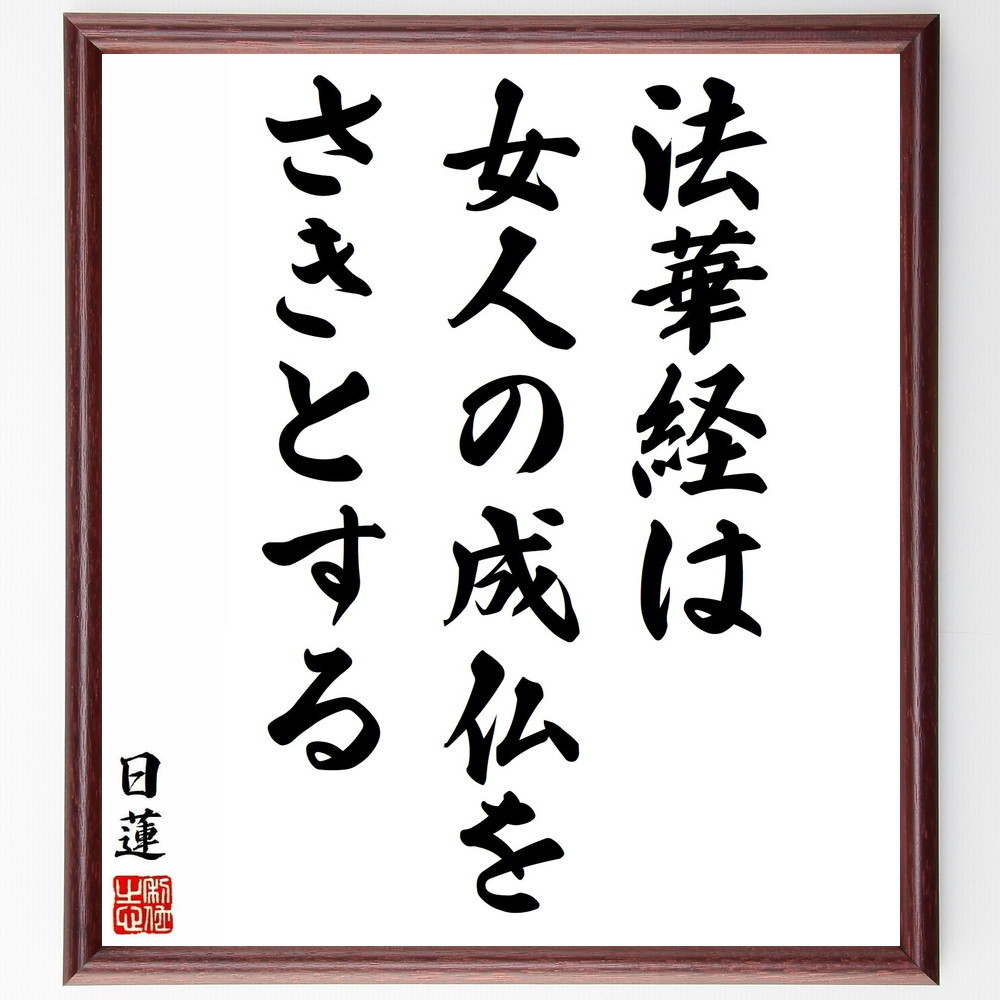 法華経は
女人の成仏を
さきとする
日蓮